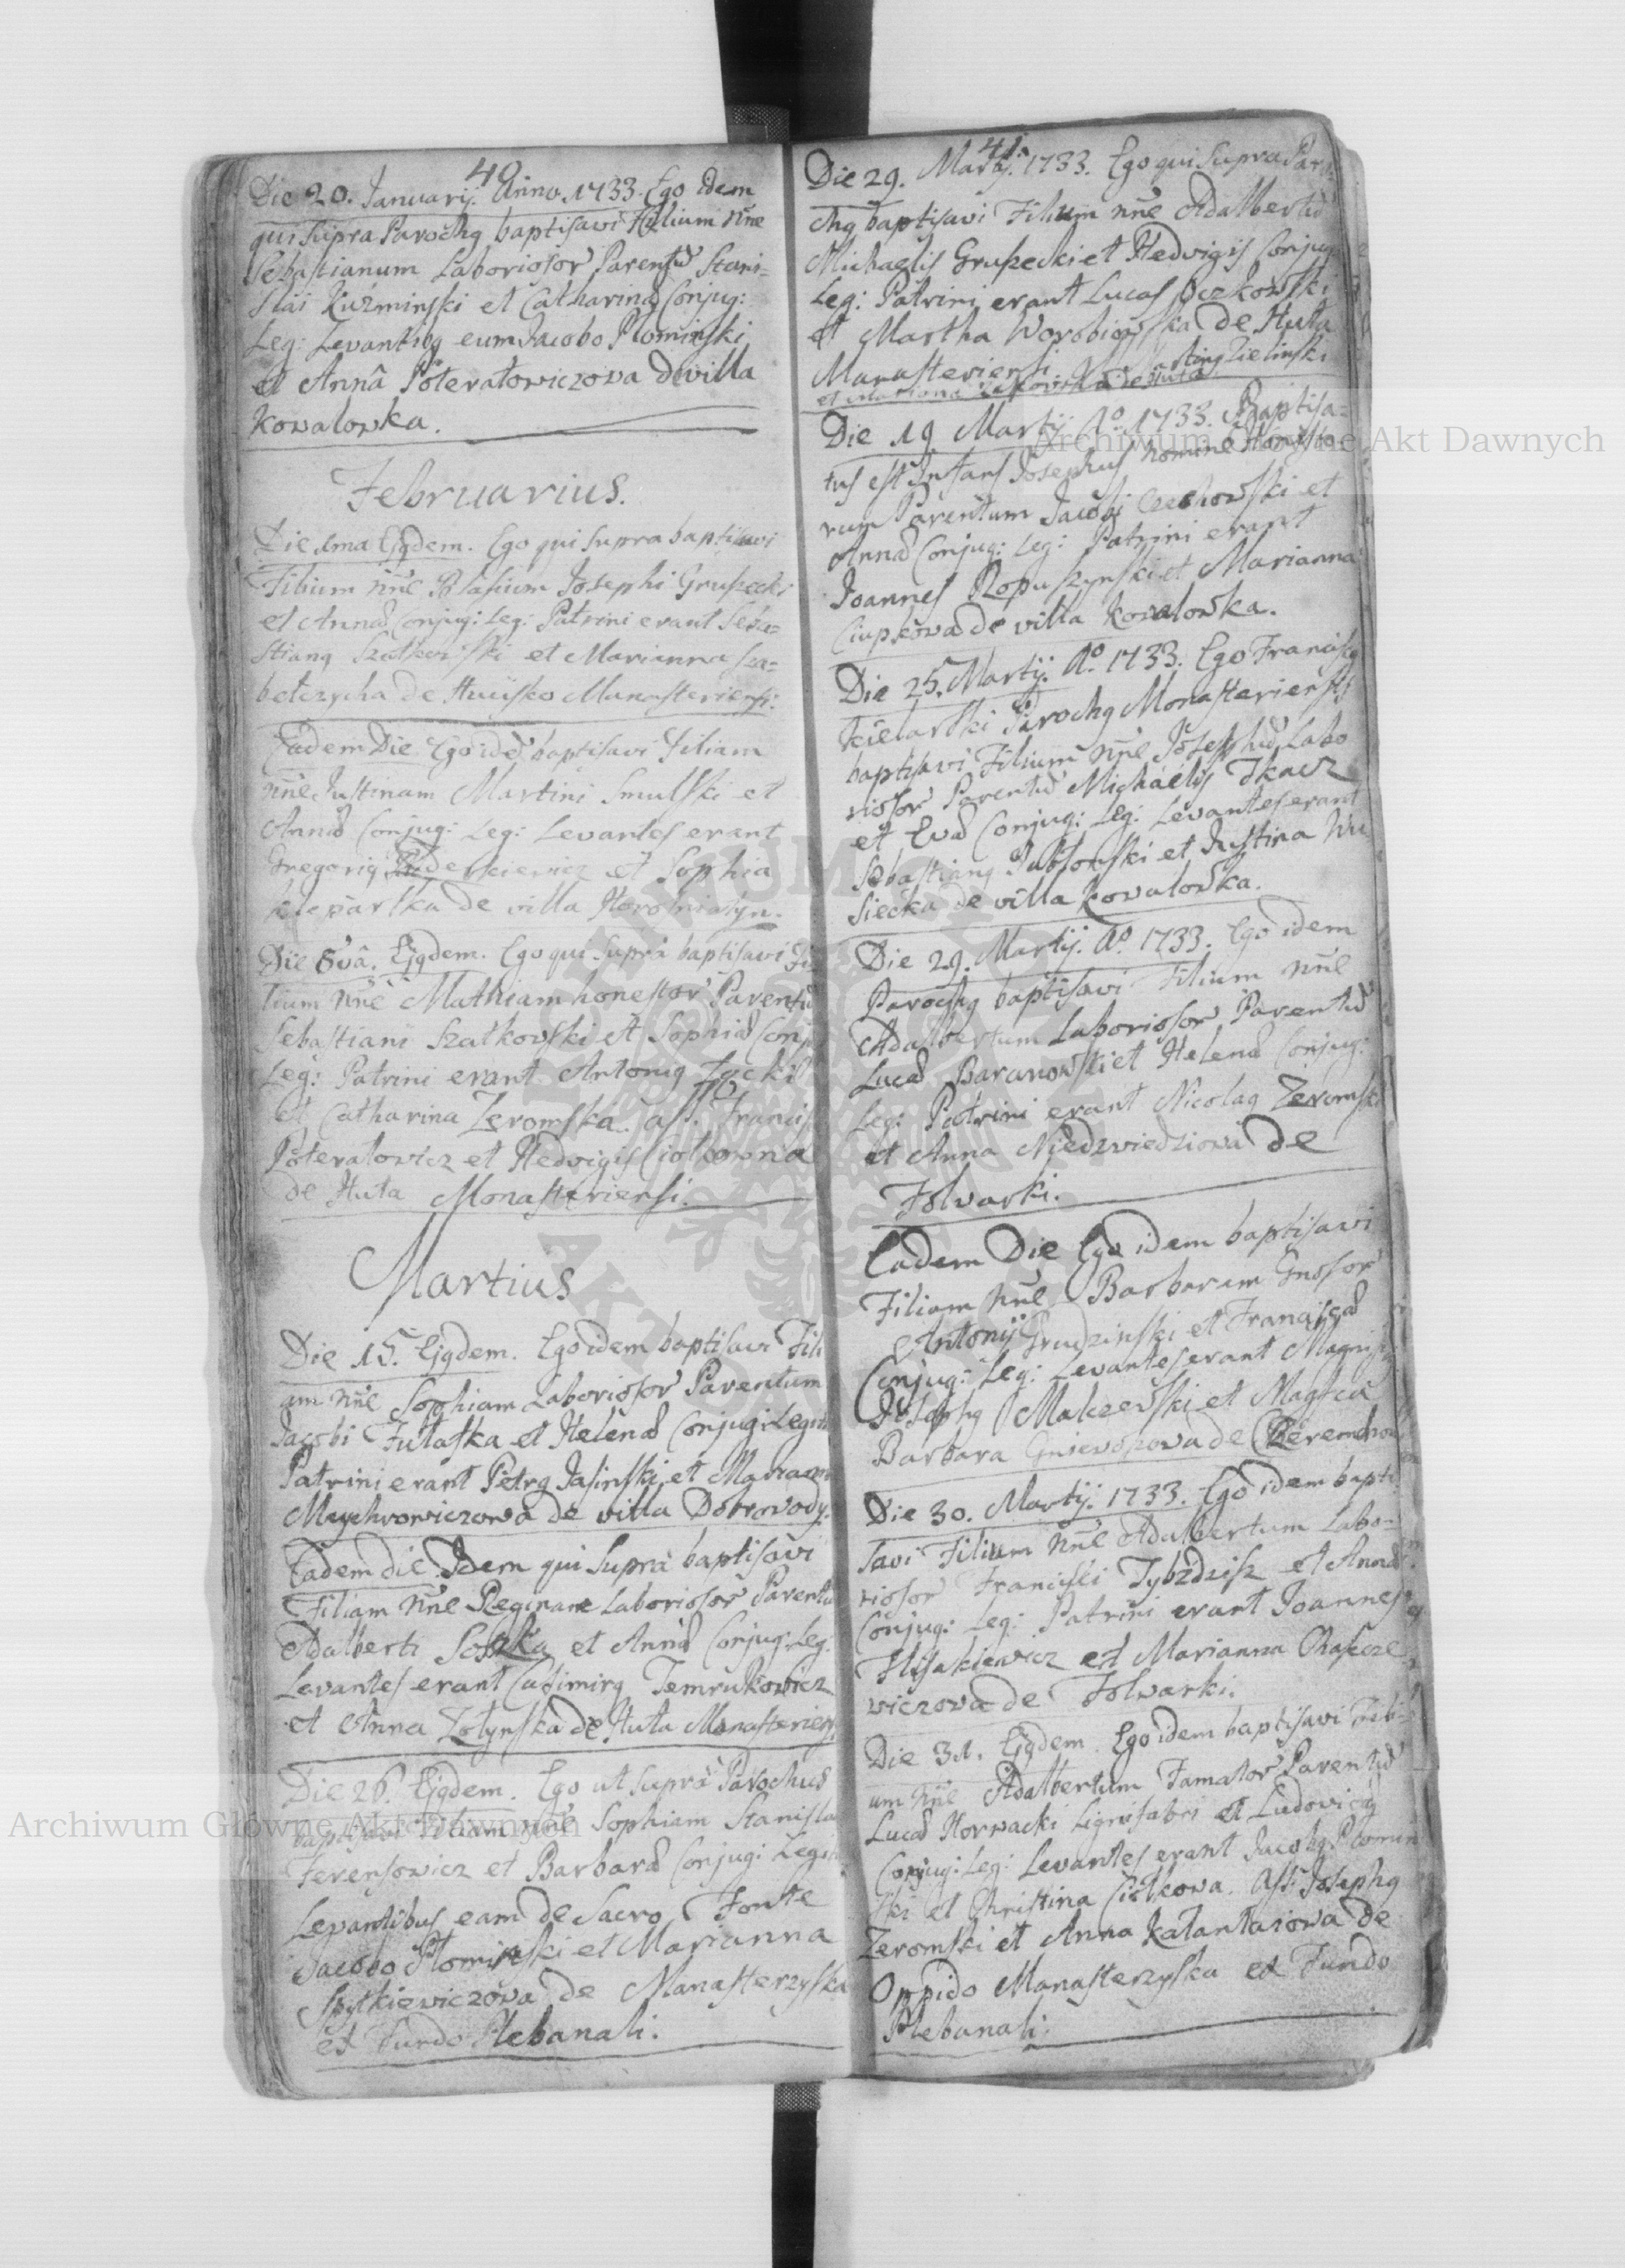 40
Die 20. Januarij. Anno 1733. Ego idem
qui supra Parochg baptisavi Filium nne
Sebastianum Laborioſor Parentu Stani-
slai Kuzminski et Catharina Conjug:
Leg: Levantibg eum Jacobo Plominski
et Anna Poteratowiczowa de villa
Kowalowka.
Februarius.
Die 1ma Ejgdem. Ego qui supra baptisavi
Filium nne Blasium Josephi Gruszecki
et Anna Conjug: Leg: Patrini erant Seba-
stiang Szatkowski et Marianna
de Hucisko Monasteriensi.
Eadem Die Ego ide baptisavi Filiam
nne Justinam Martini Smulski et
Anna Conjug: Leg: Levantes erant
Gregorig et Sophia
de villa
Die 8va. Ejgdem. Ego qui supra baptisavi Fi
lium nne Mathiam honestor Parentu
Sebastiani Szatkowski et Sophia Conj
Leg: Patrini erant Antonig
et Catharina Zeromska. ass. Francis
Poteratowicz et Hedvigis Ciolkowna
de Huta Monasteriensi.
Martius
Die 15. Ejgdem. Ego idem baptisavi Fili
am nne Sophiam Laborioſor Parentum
Jacobi Futaſka et Helena Conjug: Legit
Patrini erant Petrg Jasinski et Marian
de villa Dobrowody.
Eadem die Idem qui supra baptisavi
Filiam nne Reginam Laborioſor Parentu
Adalberti et Anna Conjug: Leg:
Levantes erant Casimirg Temrukowicz
et Anna Zotynska de Huta Monasteriens.
Die 26. Ejgdem. Ego ut supra Parochus
baptisavi Filiam nne Sophiam Stanislai
Ferensowicz et Barbara Conjug: Legit
Levantibus eam de Sacro Fonte
Jacobo Plominski et Marianna
Spytkiewiczowa de Manasterzyska
ex Fundo Plebanali.
41.
Die 29. Martij. 1733. Ego qui supra Paro
chg baptisavi Filium nne Adalbertu
Michaelis Gruszecki et Hedvigis Conjug
Leg: Patrini erant Lucas Oczkowski
et Martha Worobiowska de Huta
Manasteriensi Marting Zielinski
et Mariana de Huta
Die 19 Martij Ao. 1733. Baptisa-
tus est Infans Josephus nomine Honesto-
rum Parentum Jacobi Czechowski et
Anna Conjug: Leg: Patrini erant
Joannes Ropuszynski et Marianna
Ciupkowa de villa Kowalowka.
Die 25. Martij. Ao. 1733. Ego Francisg
Kielarski Parochg Monasteriensis
baptisavi Filium nne Josephu Labo
riosor Parentu Michaelis Tkacz
et Eva Conjug: Leg: Levantes erant
Sebastiang Jablonski et Justina Wu
siecka de villa Kowalowka.
Die 29. Martij. Ao. 1733. Ego idem
Parochg baptisavi Filium nne
Adalbertum Laborioſor Parentu
Luca Baranowski et Helena Conjug:
Leg: Patrini erant Nicolag Zeromski
et Anna Niedzwiedziowa de
Folwarki.
Eadem Die Ego idem baptisavi
Filiam nne Barbaram Gnosor
Antonij Grudzinski et Francisca
Conjug: Leg: Levantes erant Magnif
Josephg Makowski et Magfca
Barbara Gniewoszowa de
Die 30. Martij. 1733. Ego idem bapti
savi Filium nne Adalbertum Labo-
riosor Francisci Tybzdzisz et Anna
Conjug: Leg: Patrini erant Joannes
Ilisakiewicz et Marianna
wiczowa de Folwarki.
Die 31. Ejgdem. Ego idem baptisavi Fili-
um nne Adalbertum Famator Parentu
Luca Horwacki Lignifabri et Ludovica
Conjug: Leg: Levantes erant Jacobg Plomin
ski et Christina Ciolkowa. Ass: Josephg
Zeromski et Anna Katantaiowa de
Oppido Manasterzyska ex Fundo
Plebanali.
Archiwum Główne Akt Dawnych
Archiwum Główne Akt Dawnych